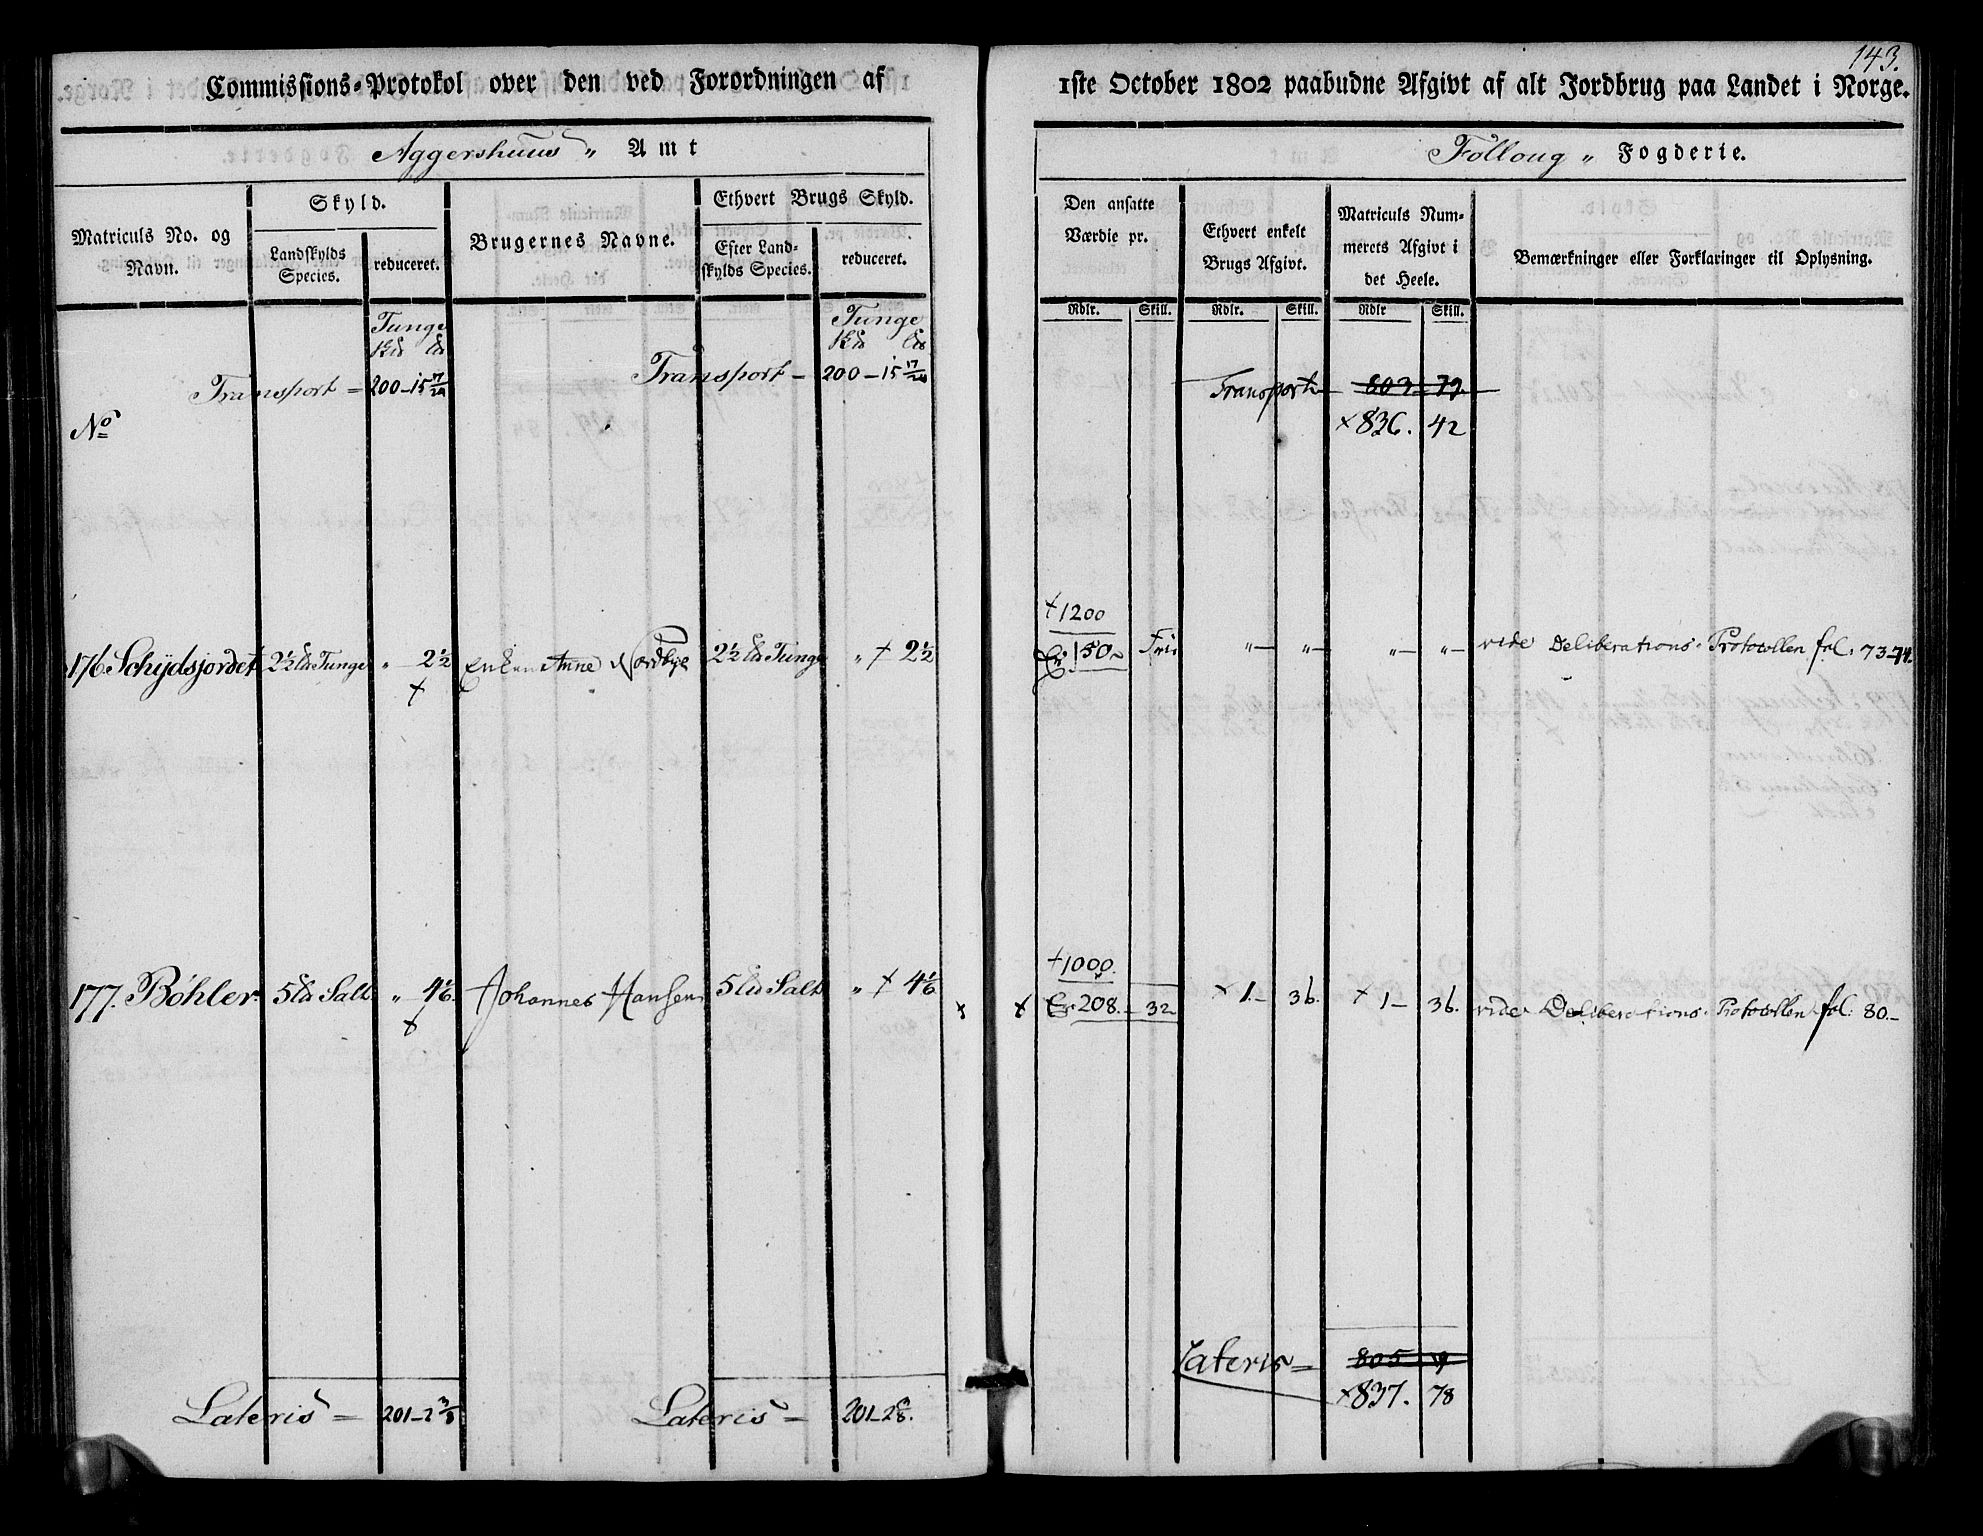 143.
Commissions-Protokol over den ved Forordningen af 1ste October 1802 paabudne Afgivt af alt Jordbrug paa Landet i Norge.
Aggershuus „ Amt
Folloug „ Fogderie.
Matriculs No. og Navn.
Skyld.
Landskylds Species.
reduceret.
Brugernes Navne.
Ethvert Brugs Skyld.
Efter Landskylds Species.
reduceret.
Den ansatte Værdie pr.
Ethvert enkelt Brugs Afgivt.
Matriculs Nummerets Afgivt i det Heele.
Bemærkninger eller Forklaringer til Oplysning.
Rdlr. Skill. Rdlr. Skill. Rdlr Skill.
Tunge Tunge
Transport = 200 – 15 17/24 Transport – 200 – 15 17/24 Transport
×836. 42
No
+1200
176. Schydsjordet 2½ Tunge „ – 2½ Enken Anne Nordbye 2½ Tunge „ + 2½ Er 150 – Frie „ – „ – „ – „ – vide Deliberations-Protocollen fol: 73-74.
+
+1000.
177. Bøhler. 5 Salt „ – 4⅙. Johannes Hansen 5 Salt „ + 4⅙ × × Er 208. – 32 × 1. – 36. × 1 – 36. vide Deliberations-Protocollen fol: 80. –
+
Lateris = 805
Lateris = 201 – 2 Lateris – 201 – 2 ×837. 78